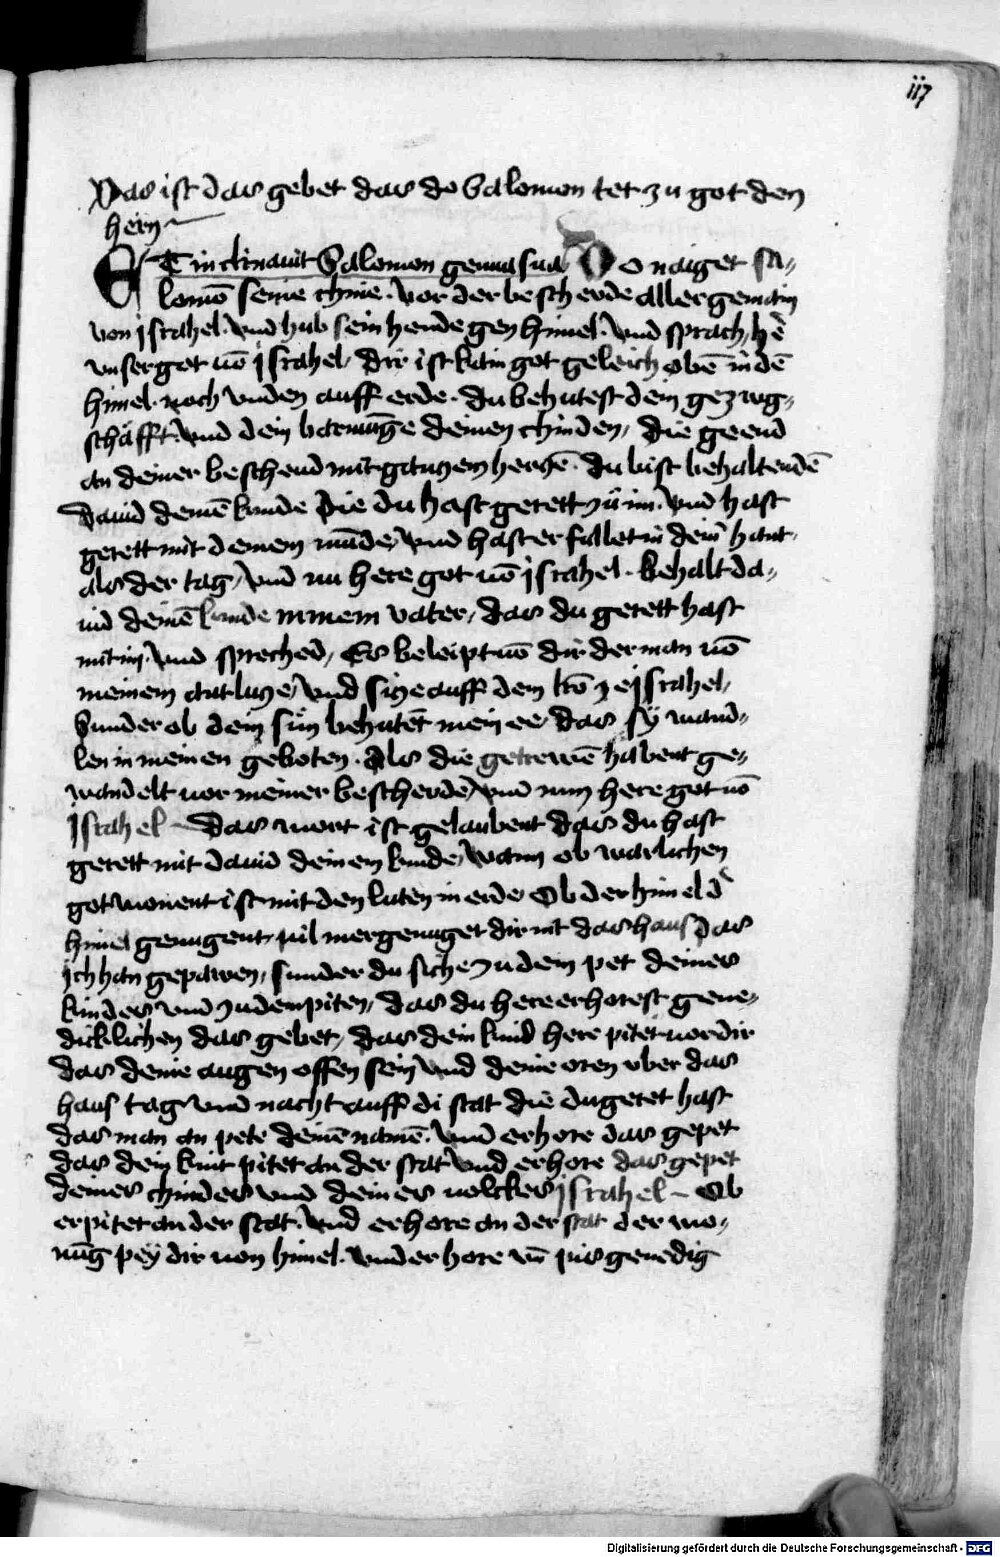 117
Das ist das gebet das do Salomon tet zu got den
hern
ET inclinauit Salomon genua sua Do naiget sa-
lomō seine chnie. vor der beschewde aller gemain
von jsrahel. vnd hub sein hende gen himel. vnd sprach, he
vnser got uō jsrahel, dir ist kain got geleich obē in dē
himel. noch vnden auff erde. du behutest dein gezwg-
schafft. vnd dein barmūge deinen chinden, die geend
an deiner beschewd mit ganczem herczē. du bist behaltendē
dauid deinē kinde die du hast gerett zu im. vnd hast
gerett mit deinem mūde, vnd hast erfullet in deiner hant.
als der tag, vnd nu here got uō jsrahel. behalt da-
uid deinē kinde meinem vater, das du gerett hast
mit im. vnd sprechēd, Es beleipt uō dir der man uō
meinem antlucze, vnd sicze auff dem trō ze jsrahel,
Sunder ob dein sun behutēt mein ee, das sy wand-
len in meinen geboten. Als die getrewē habent ge-
wandelt vor meiner beschewde, vnd nun here got uō
Jsrahel das wort ist gelaubent das du hast
gerett mit dauid deinem kinde, Wann ob warlichen
got wonent ist mit den luten in erde Ob der himel d
himel genugent, vil mer genuget dir nit das haus das
ich han gepawen, sunder du siche zu dem pet deines
kindes vnd zu den piten, das du here erhorest gene-
dicklichen das gebet, das dein kind here pitet vor dir
das deine augen offen sein vnd deine oren vber das
haus tag vnd nacht auff di stat die du geret hast
das man an pete deinē namē. vnd erhore das gepet
das dein kint pitet an der stat vnd erhore das gepet
deines chindes vnd deines uolckes jsrahel Ob
er pitet an der stat. vnd erhore an der stat der wo-
nūg pey dir uon himel. vnd erhore vn pis genedig
Digitalisierung gefördert durch die Deutsche Forschungsgemeinschaft - DFG